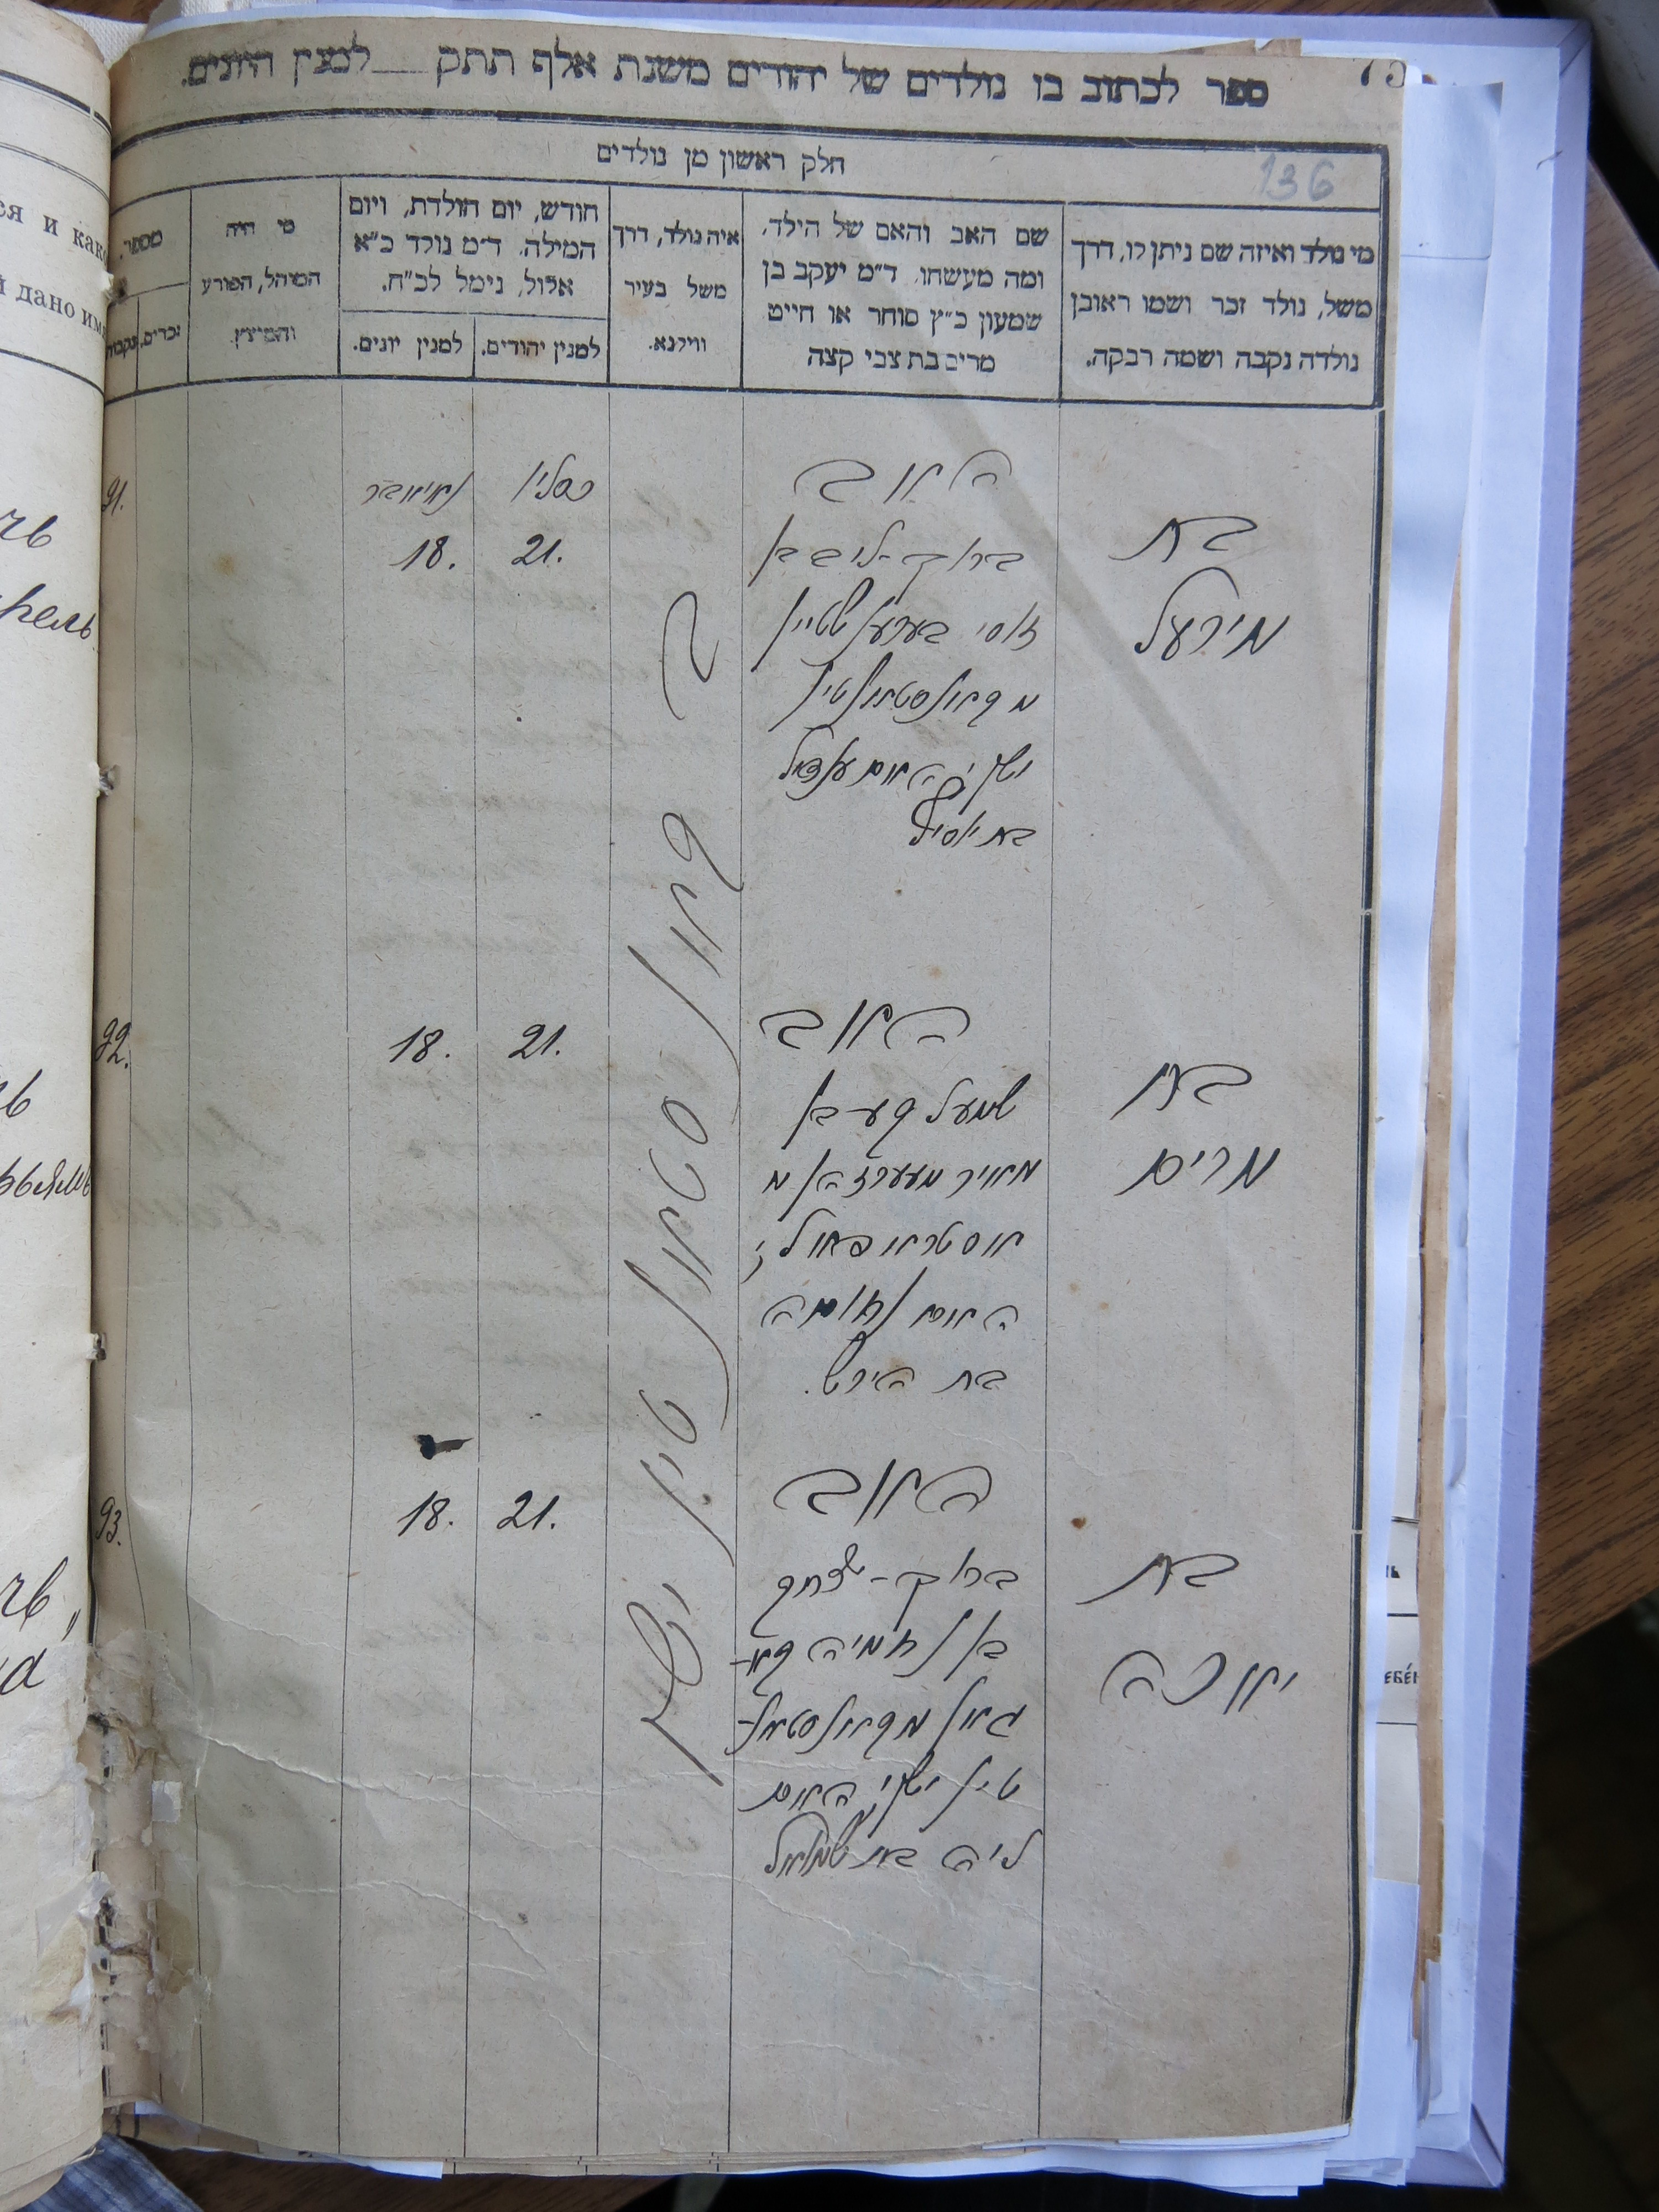 ספר לכתוב בו נולדים של יהודים משנת אלף תתק ___ למנין היונים.
136
חלק ראשון מן נולדים
מי נולד ואיזה שם ניתן לו, דרך
משל, נולד זכר ושמו ראובן
נולדה נקבה ושמה רבקה.
שם האב והאם של הילד,
ומה מעשהו, ד"מ יעקב בן
שמעון כ"ץ סוחר או חייט
מרים בת צבי קצה
איה נולד, דרך
משל בעיר
ווילנא.
חודש, יום הולדת, ויום
המילה. ד"מ נולד כ"א
אלול, נימל לכ"ח.
למנין יהודים.
למנין יונים.
מי היה
המוהל, הפורע
והמוצץ.
מספר.
זכרים.
נקבות
בת
מירעל
האב
ברוך-ליב בן
יוסי בערענשטיין
מקאנסטאנטין
ישן, האם
בת יוסיף
כסליו
21.
נאיאבר
18.
91.
בת
מרים
האב
שמעל בן
מאיר
אוסטראפאלי
האם נחומה
בת הירש.
21.
18.
92.
בת
יאכה
האב
ברוך-יצחק
בן נחמיה קא-
גאן מקאנסטאנ-
טין ישן, האם
ליה בת שמואל
21.
18.
93.
ק קאנסטאנטין ישן
ся и како
дано им
чь
рель
чь
а